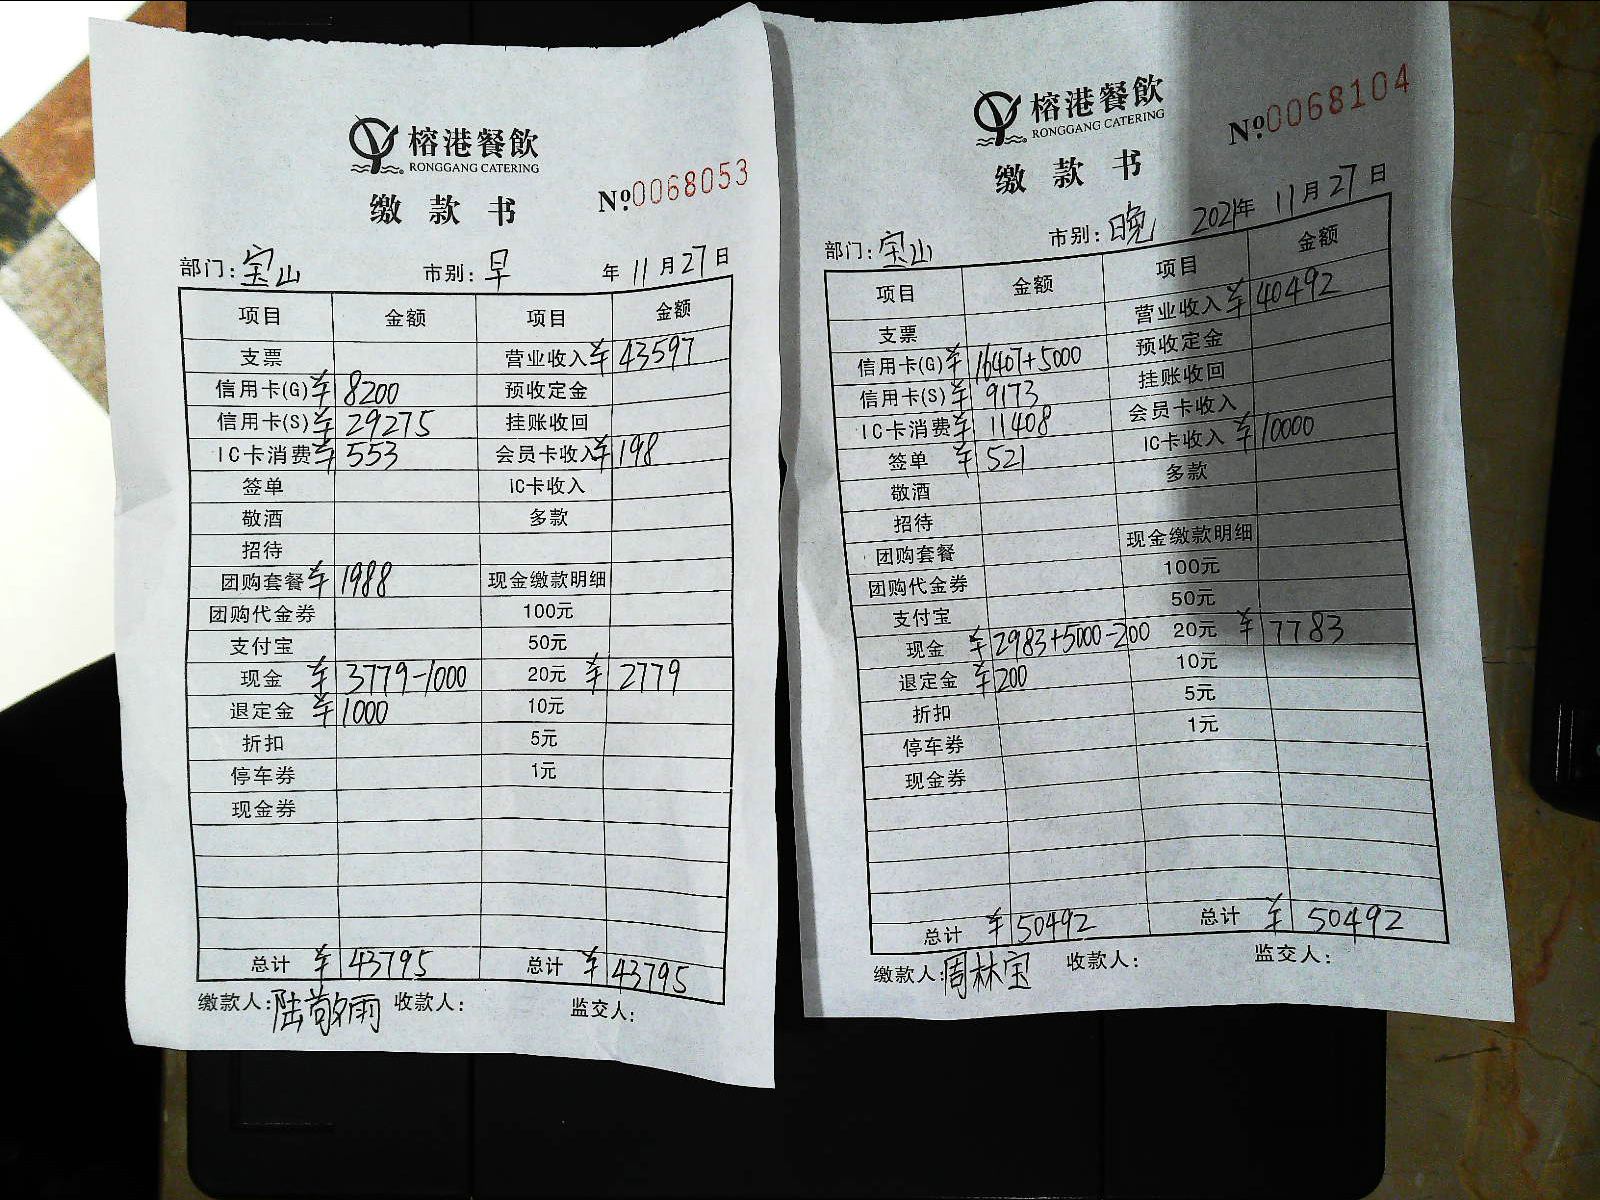 榕港餐飲
RONGGANG CATERING
缴款书
№0068053
部门:宝山 市别:早 年11月27日
项目 金额 项目 金额
支票 营业收入 ¥43597
信用卡(G) ¥8200 预收定金
信用卡(S) ¥29275 挂账收回
IC卡消费 ¥553 会员卡收入 ¥198
签单 IC卡收入
敬酒 多款
招待
团购套餐 ¥1988 现金缴款明细
团购代金券 100元
支付宝 50元
现金 ¥3779-1000 20元 ¥2779
退定金 ¥1000 10元
折扣 5元
停车券 1元
现金券
总计 ¥43795 总计 ¥43795
缴款人:陆敬雨 收款人: 监交人:
榕港餐飲
RONGGANG CATERING
缴款书
№0068104
部门:宝山 市别:晚 2021年11月27日
项目 金额 项目 金额
支票 营业收入 ¥40492
信用卡(G) ¥16407+5000 预收定金
信用卡(S) ¥9173 挂账收回
IC卡消费 ¥11408 会员卡收入
签单 ¥521 IC卡收入 ¥10000
敬酒 多款
招待
团购套餐 现金缴款明细
团购代金券 100元
支付宝 50元
现金 ¥2983+5000-200 20元 ¥7783
退定金 ¥200 10元
折扣 5元
停车券 1元
现金券
总计 ¥50492 总计 ¥50492
缴款人:周林宝 收款人: 监交人: